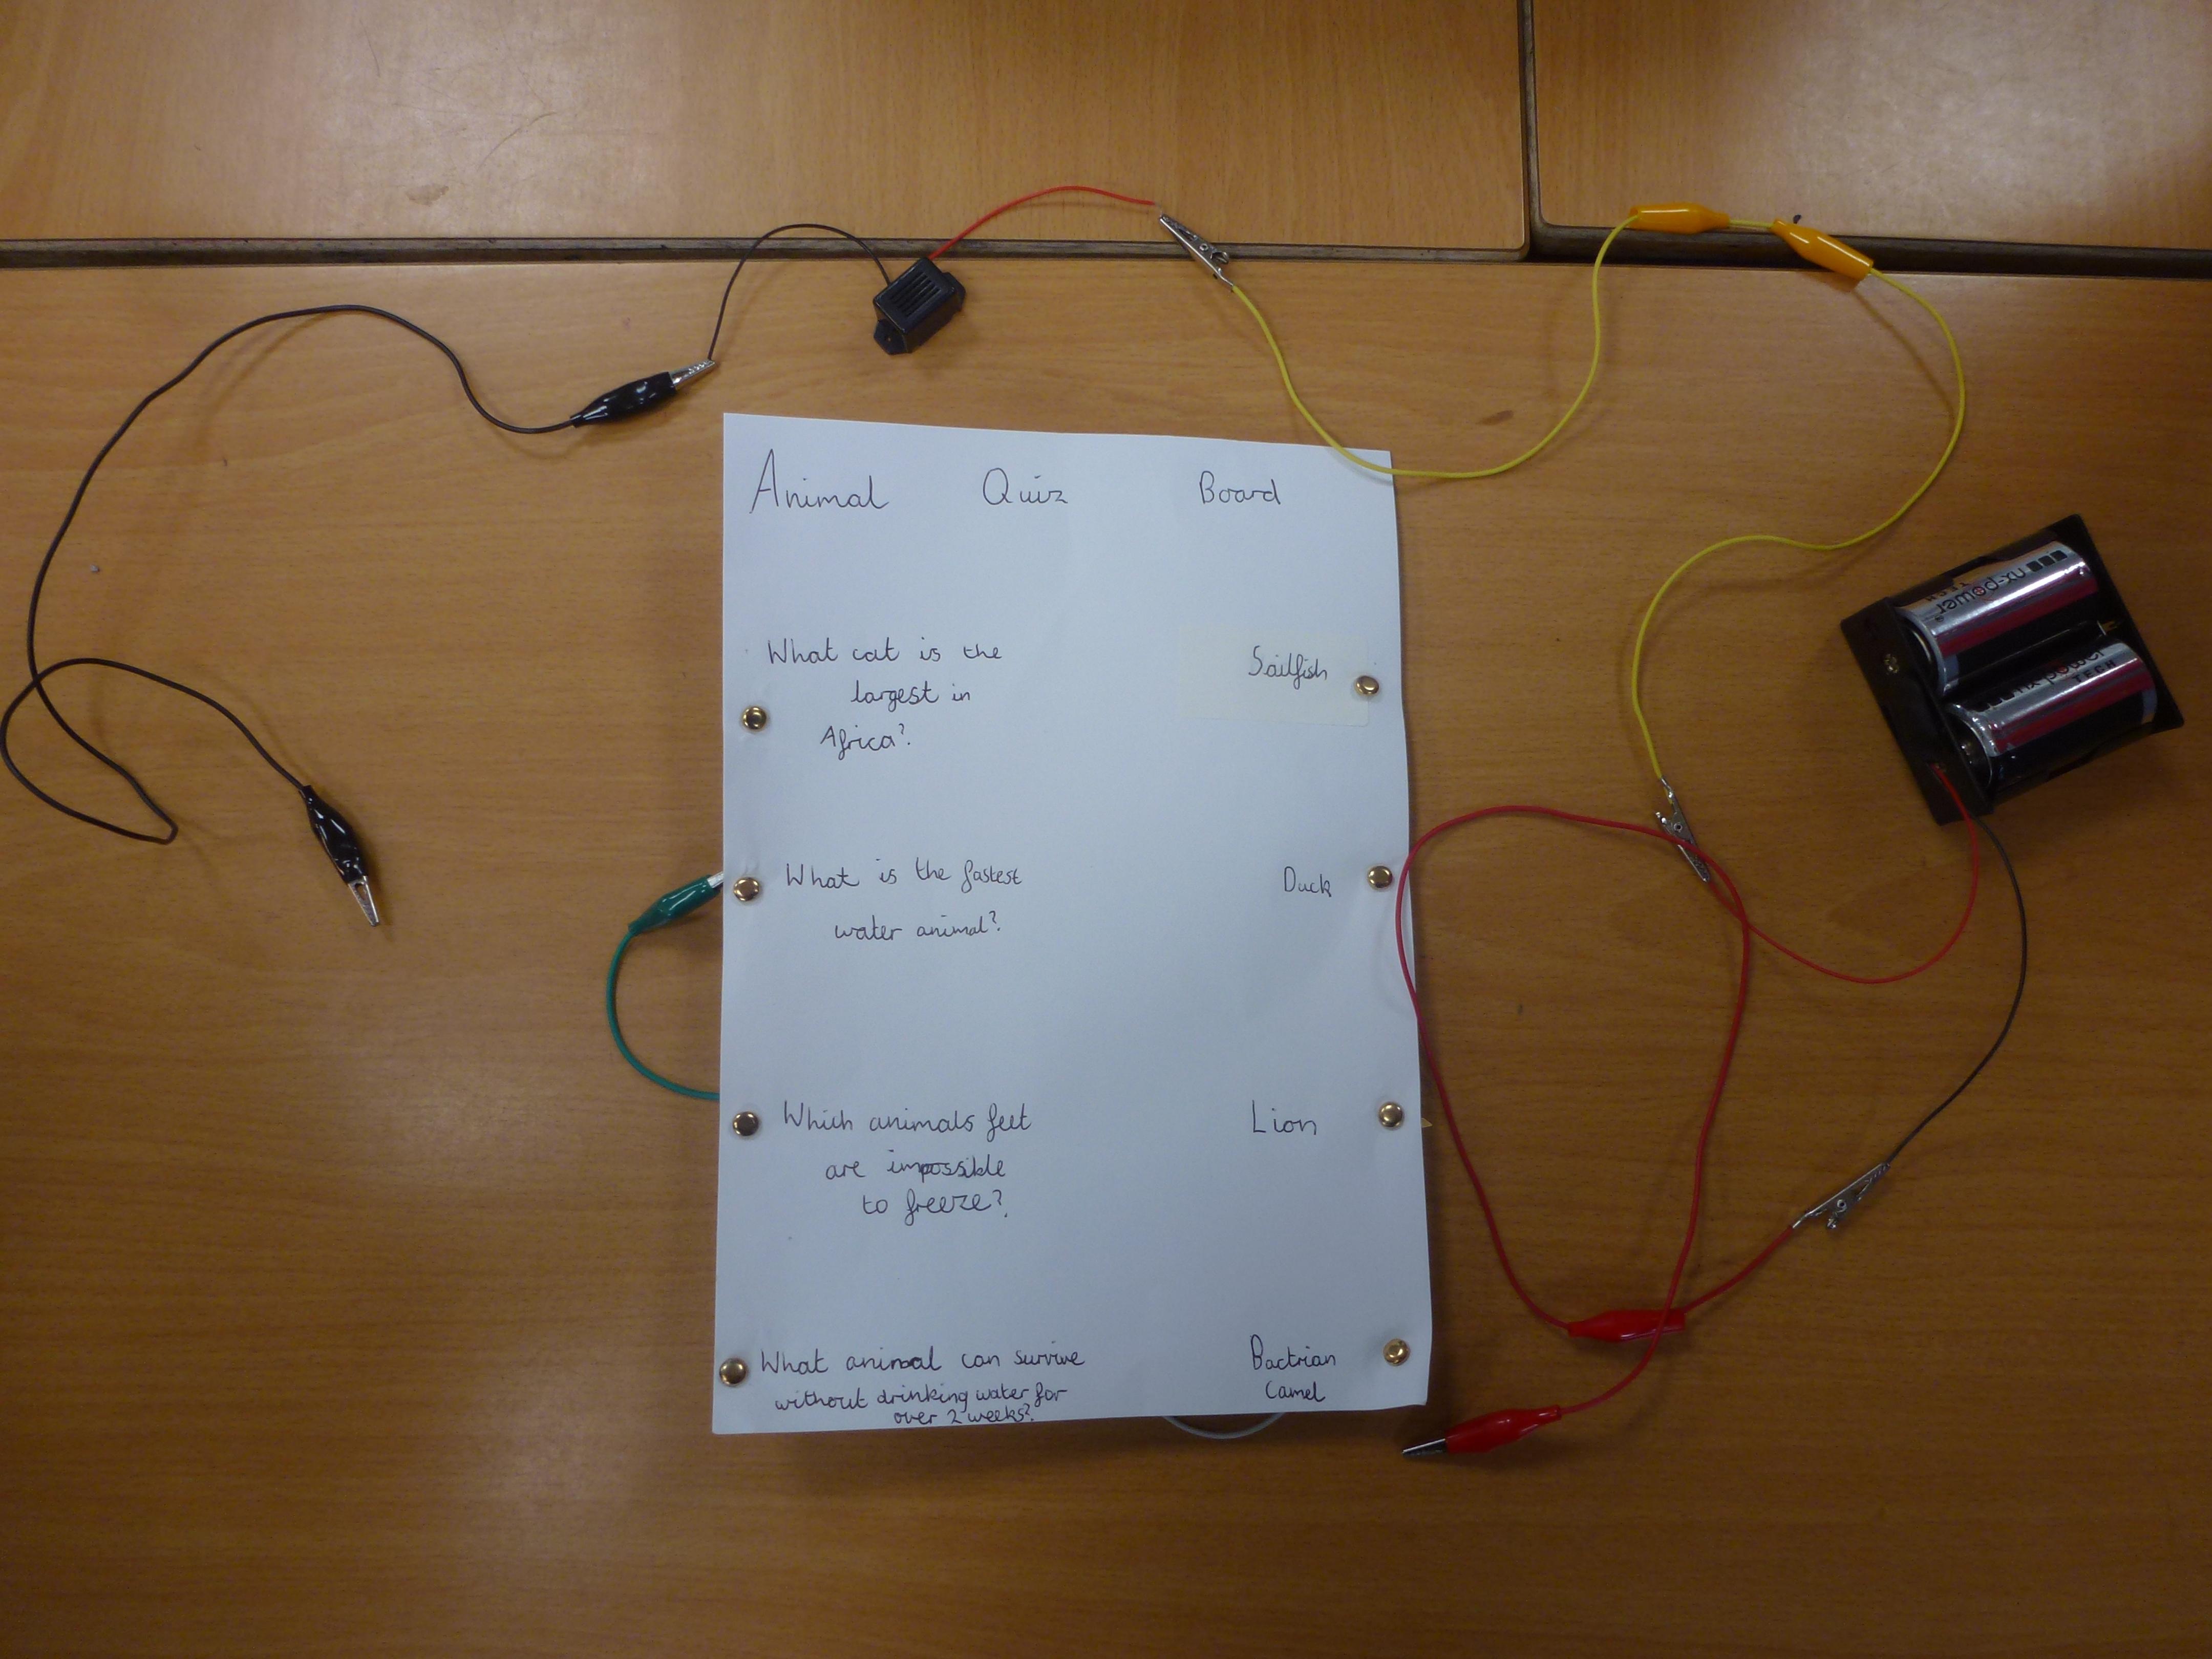 Animal Quiz Board
What cat is the
largest in
Africa?
Sailfish
What is the fastest
water animal?
Duck
Which animals feet
are impossible
to freeze?
Lion
What animal can survive
without drinking water for
over 2 weeks?
Bactrian
Camel
nx-power
TECH
nx-power
TECH